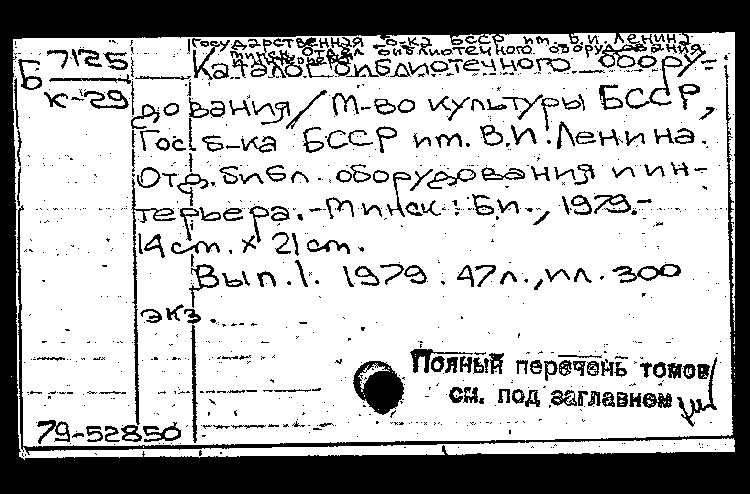 Государственная б-ка БССР им. В.И. Ленина
Минск. Отдел библиотечного оборудования
и интерьера
Б 7125
К-29
Каталог библиотечного обору-
дования / М-во культуры БССР,
Гос. б-ка БССР им. В.И. Ленина.
Отд. библ. оборудования и ин-
терьера. - Минск : Б.и., 1979. -
14 cm. x 21 cm.
Вып. 1. 1979. 47 л., ил. 300
экз.
Полный перечень томов
см. под заглавием
79-52850